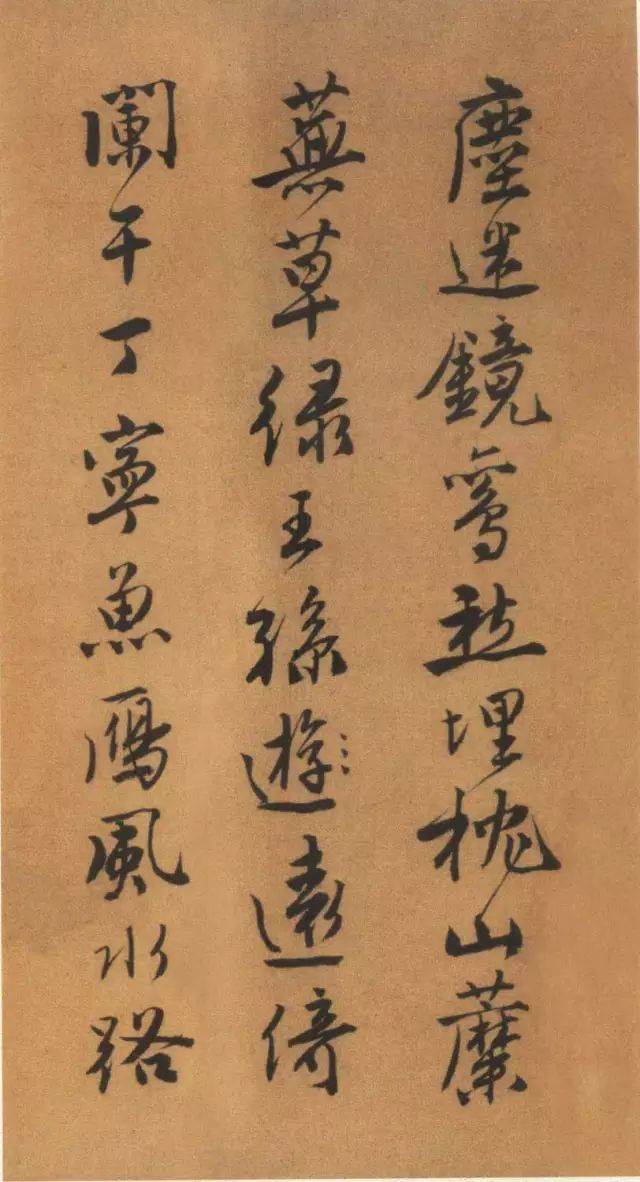 塵迷鏡鸞愁埋枕山蘼
蕪草綠王孫遊遠倚
闌干丁寧魚鴈風水路